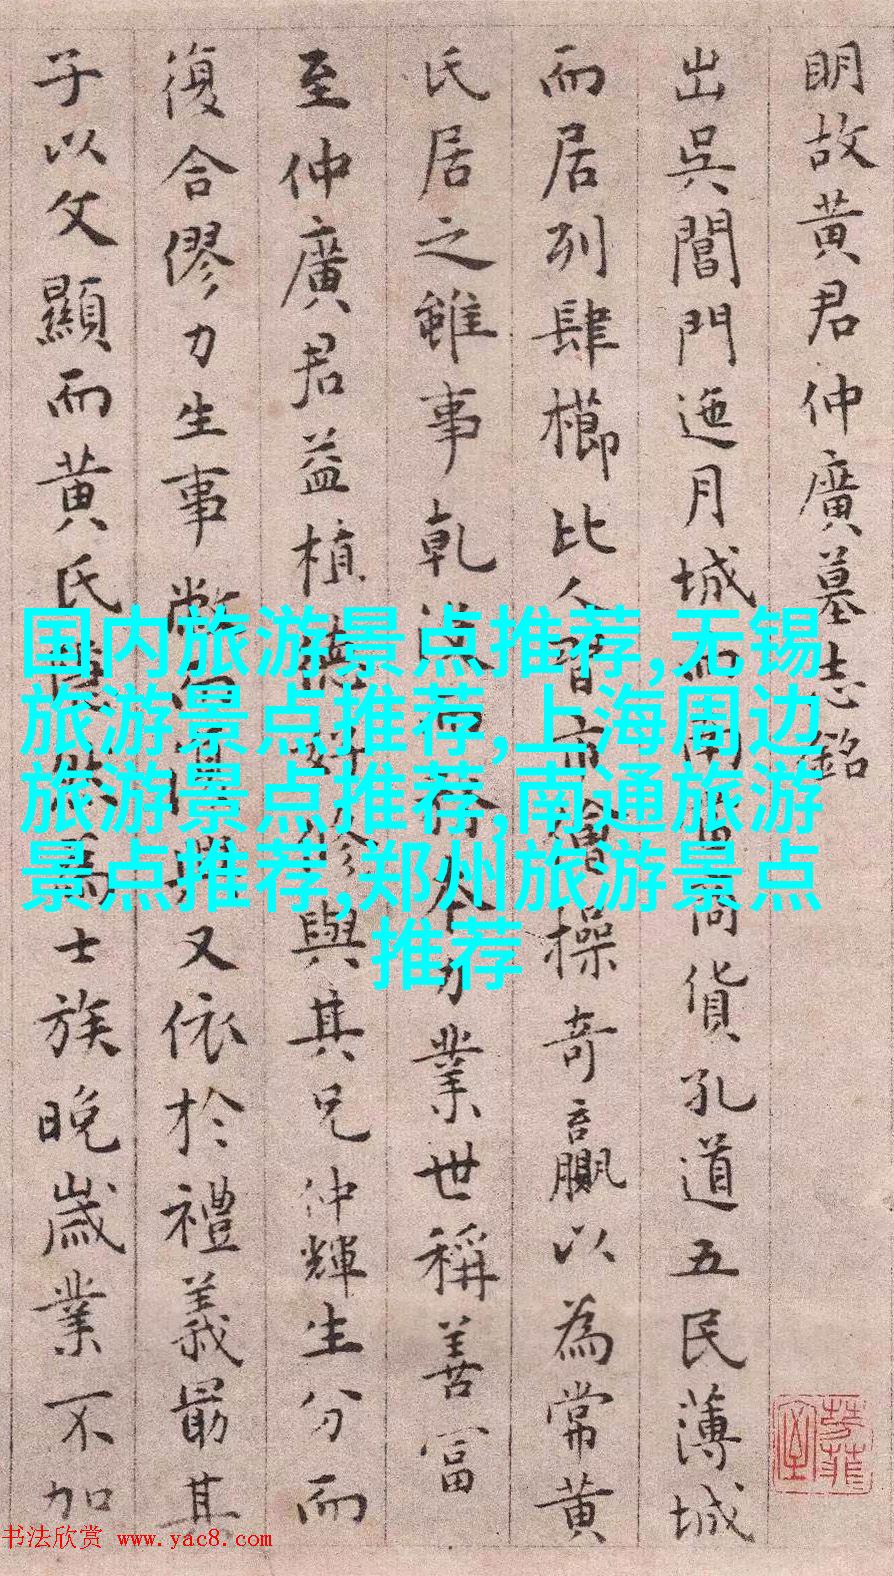 明故黄君仲廣墓志銘
出吳閶門迤月城而南商貨孔道五民薄城
而居列肆櫛比人習市儈操奇贏以為常黄
氏居之雖事乾力業世稱善富
至仲廣君益植德好修與其兄仲輝生分而
復合僇力生事興又依於禮義最其
子以文顯而黄氏為士族晚歲業不加
国内旅游景点推荐,无锡
旅游景点推荐,上海周边
旅游景点推荐,南通旅游
景点推荐,郑州旅游景点
推荐
书法欣赏 www.yac8.com